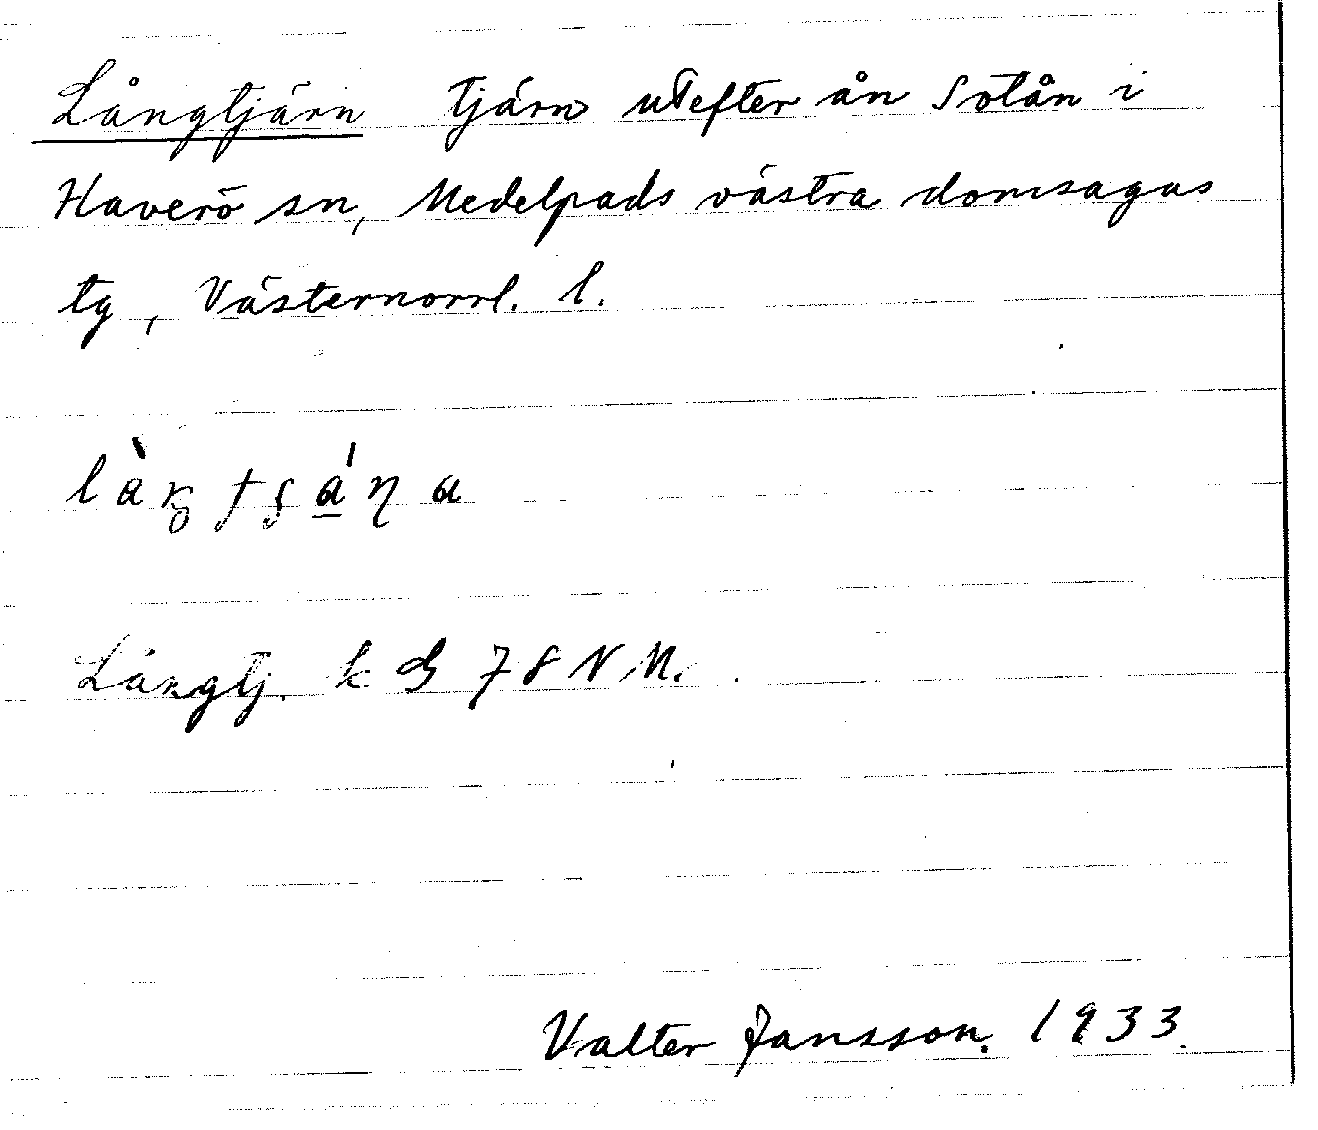 Långtjärn tjärn utefter ån Sotån i
Haverö sn, Medelpads västra domsagas
tg, Västernorrl. l.
Långtj. k G 78 N M.
Valter Jansson. 1933.